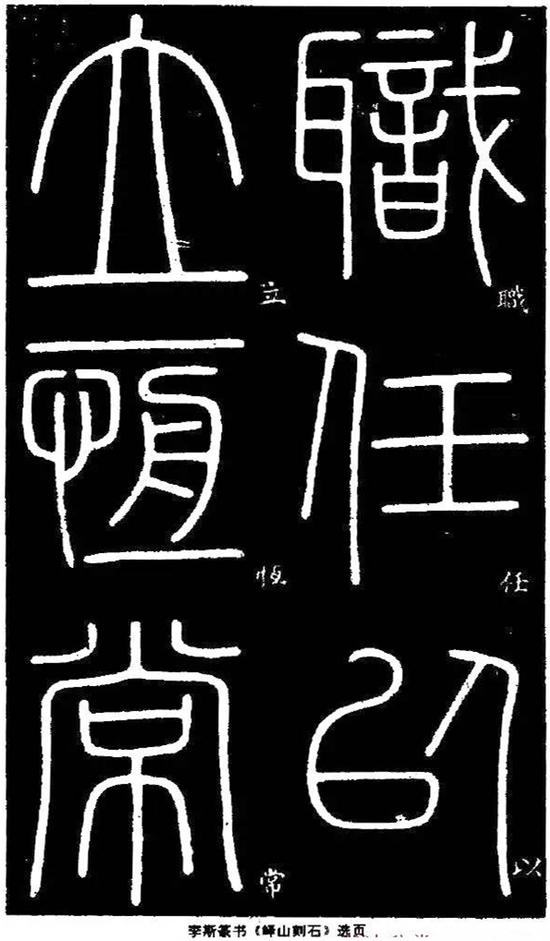 職任以
職任以
立恆常
立恆常
李斯篆书《峄山刻石》选页